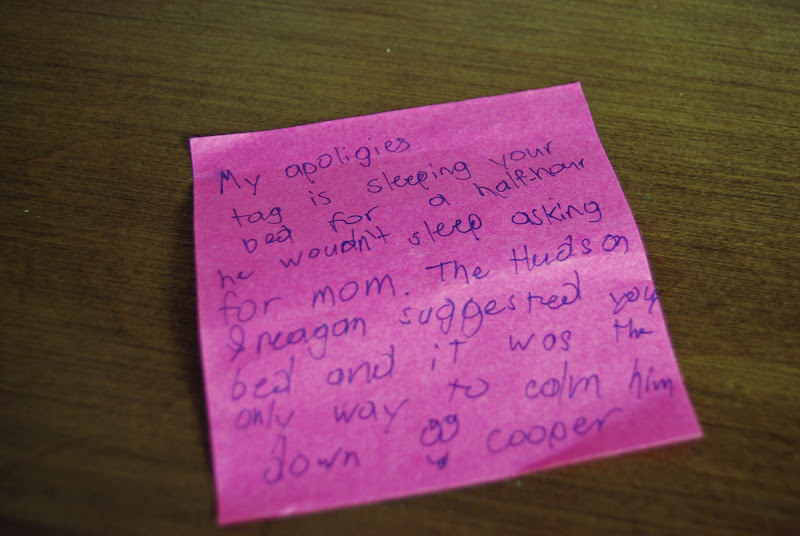 My apoligies
tag is sleeping your
bed for a halfhour
he wouldn't sleep asking
for mom. The Hudson
& reagan suggested your
bed and it was the
only way to calm him
down cooper